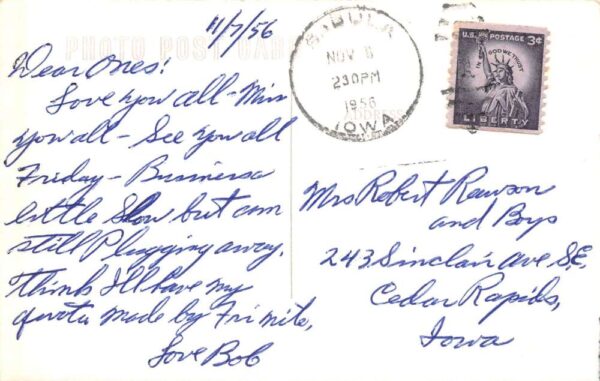 11/7/56
PHOTO POST CARD
Dear Ones!
Love you all - Miss
you all - See you all
Friday - Business a
little Slow but am
still Plugging away,
think I'll have my
quota made by Fri nite,
Love Bob
SABULA
NOV 8
230PM
1956
IOWA
ADDRESS
U.S. POSTAGE 3¢
IN GOD WE TRUST
LIBERTY
Mrs Robert Rawson
and Boys
243 Sinclair Ave S.E,
Cedar Rapids,
Iowa